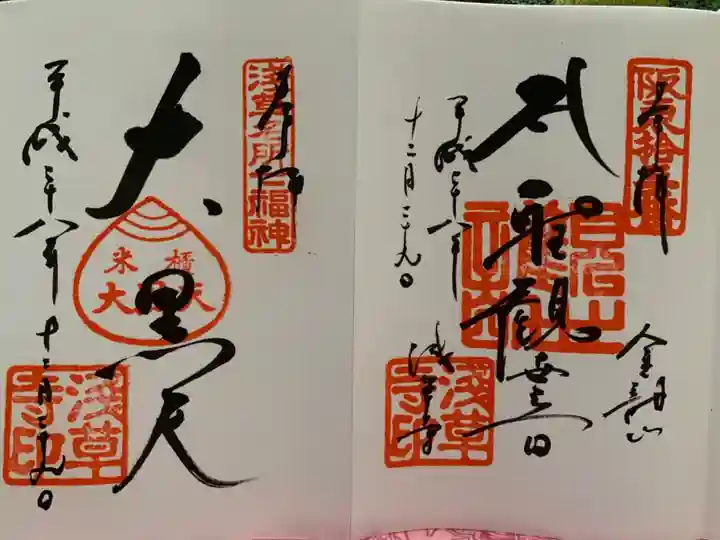 奉拝
阪東拾三番
金龍山
聖観世音
平成二十八年
十二月二十九日
浅草寺
浅草寺印
奉拝
浅草名所七福神
大黒天
米櫃
大黒天
平成二十八年十二月二十九日
浅草寺印